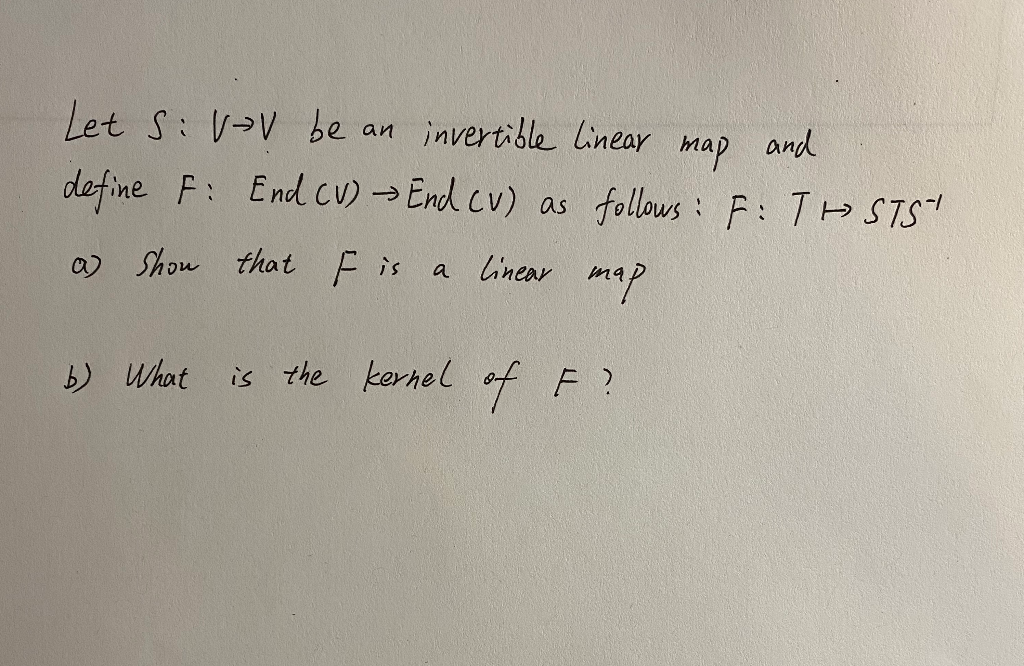 Let S: V→V be an invertible linear map and
define F: End(V) → End(V) as follows: F: T ↦ STS⁻¹
a) Show that F is a linear map
b) What is the kernel of F?